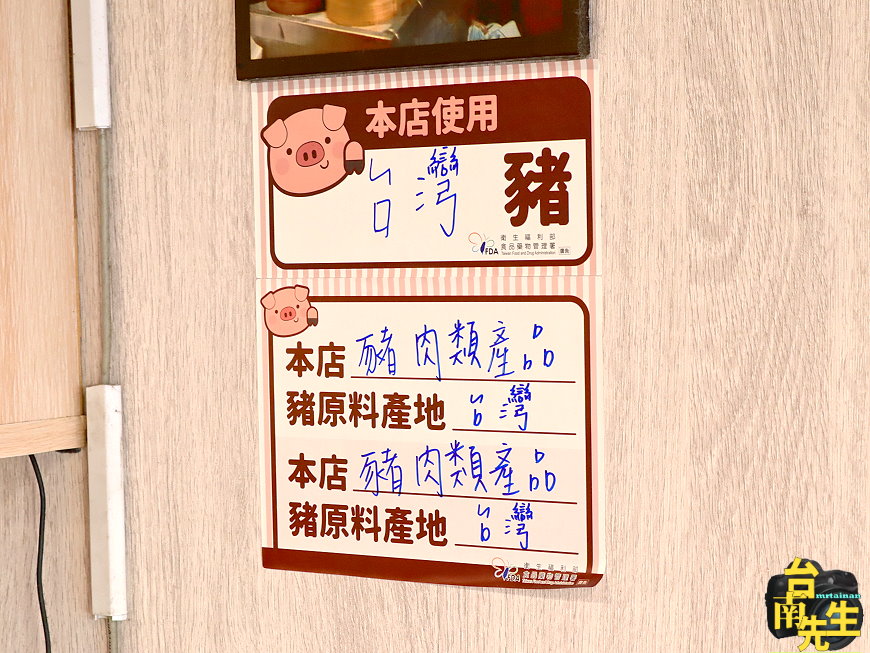 本店使用
台灣豬
衛生福利部
食品藥物管理署
FDA
Taiwan Food and Drug Administration
廣告
本店豬肉類產品
豬原料產地台灣
本店豬肉類產品
豬原料產地台灣
衛生福利部
食品藥物管理署
FDA
台南先生
mrtainan